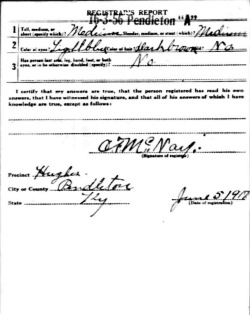 REGISTRAR'S REPORT
16-3-56 Pendleton "A"
1 Tall, medium, or short (specify which)? Medium Slender, medium, or stout (which)? Medium
2 Color of eyes? Light blue Color of hair? Dark brown No
3 Has person lost arm, leg, hand, foot, or both eyes, or is he otherwise disabled (specify)? No
I certify that my answers are true, that the person registered has read his own answers, that I have witnessed his signature, and that all of his answers of which I have knowledge are true, except as follows:
(Signature of registrar)
Precinct Hughes
City or County Pendleton
State Ky
June 5 1917
(Date of registration)